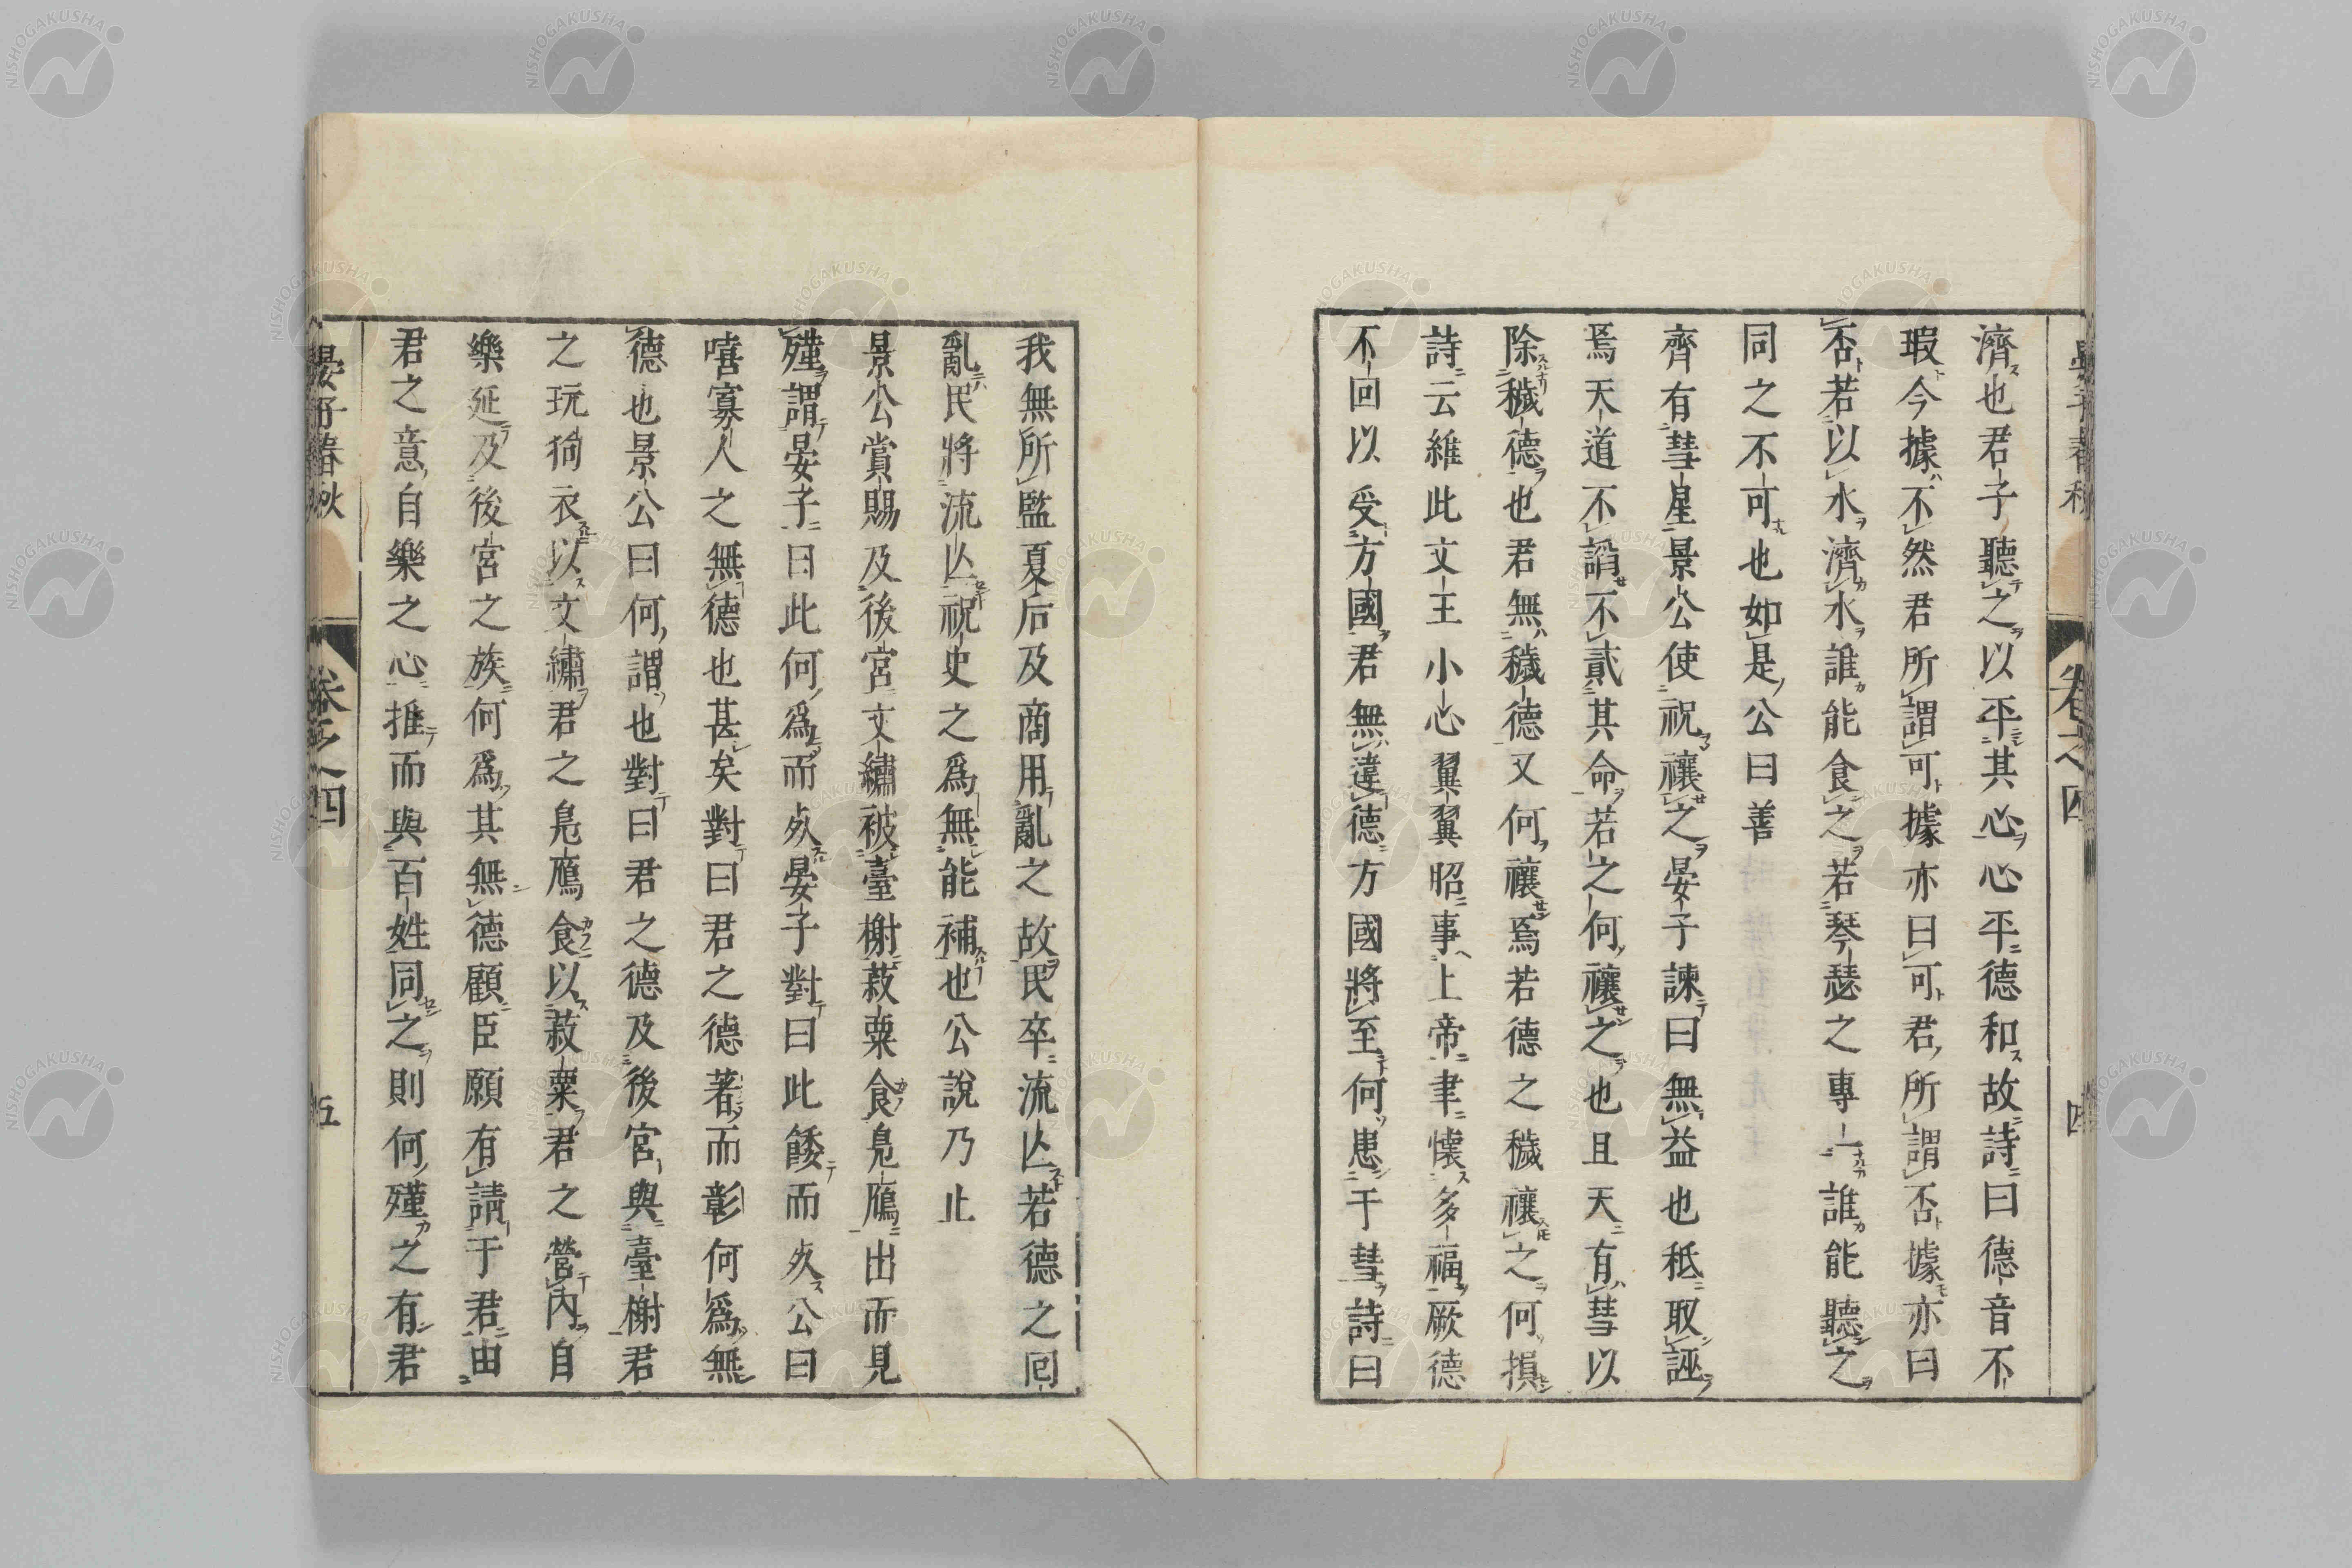 晏子春秋 卷之四 四
濟也君子聽之以平其心心平德和故詩曰德音不
瑕今據不然君所謂可據亦曰可君所謂否據亦曰
否若以水濟水誰能食之若琴瑟之專一誰能聽之
同之不可也如是公曰善
齊有彗星景公使祝禳之晏子諫曰無益也秪取誣
焉天道不謟不貳其命若之何禳之也且天有彗以
除穢德也君無穢德又何禳焉若德之穢禳之何損
詩云維此文王小心翼翼昭事上帝聿懷多福厥德
不回以受方國君無違德方國將至何患于彗詩曰
我無所監夏后及商用亂之故民卒流亾若德之回
亂民將流亾祝史之爲無能補也公說乃止
景公賞賜及後宮文繡被臺榭菽粟食鳧鴈出而見
殣謂晏子曰此何爲而死晏子對曰此餧而死公曰
嘻寡人之無德也甚矣對曰君之德著而彰何爲無
德也景公曰何謂也對曰君之德及後宮與臺榭君
之玩物衣以文繡君之鳧鴈食以菽粟君之營內自
樂延及後宮之族何爲其無德顧臣願有請于君由
君之意自樂之心推而與百姓同之則何殣之有君
晏子春秋 卷之四 五
NISHOGAKUSHA